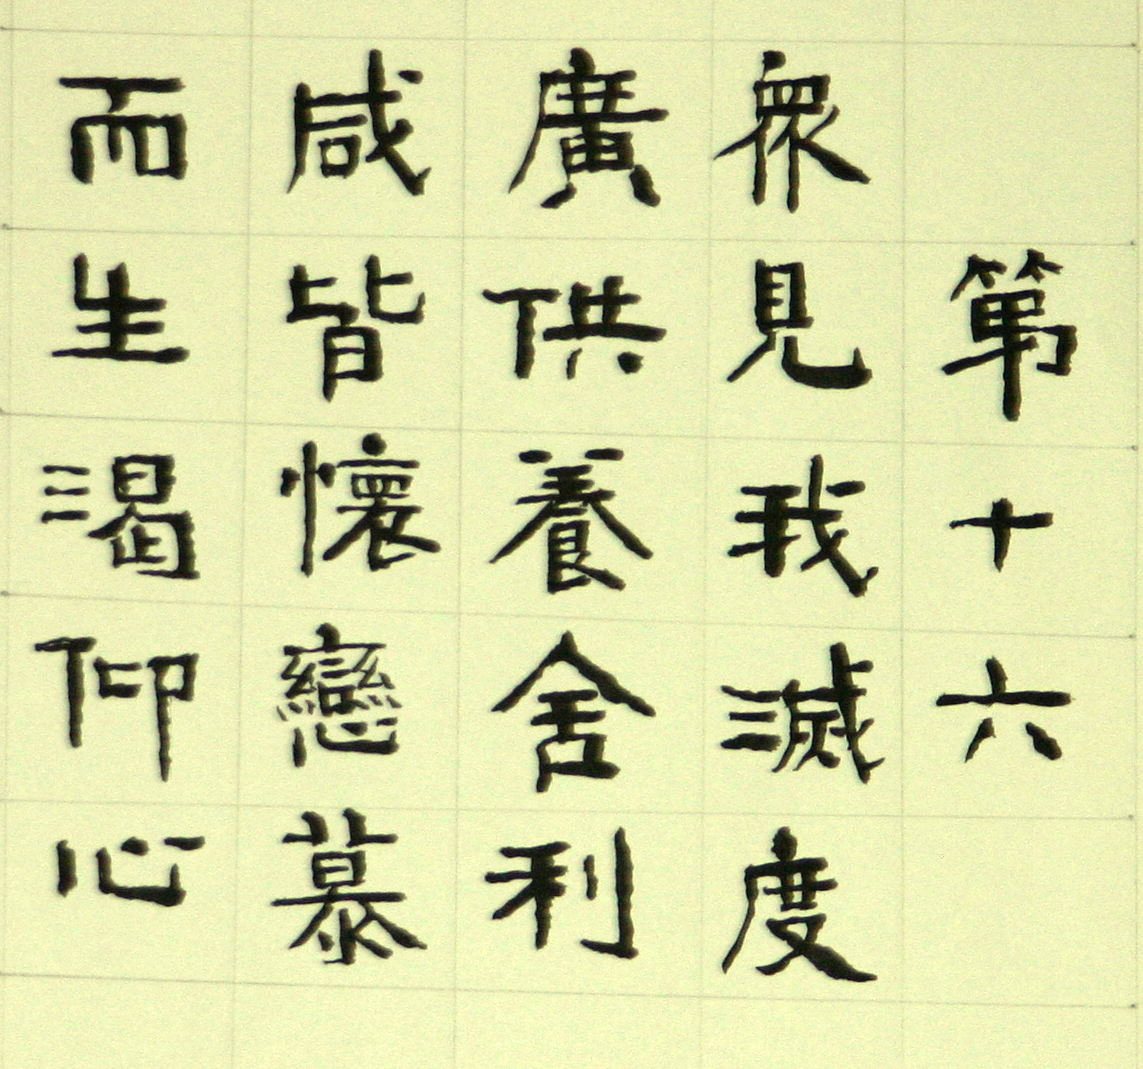 第十六
眾見我滅度
廣供養舍利
咸皆懷戀慕
而生渴仰心